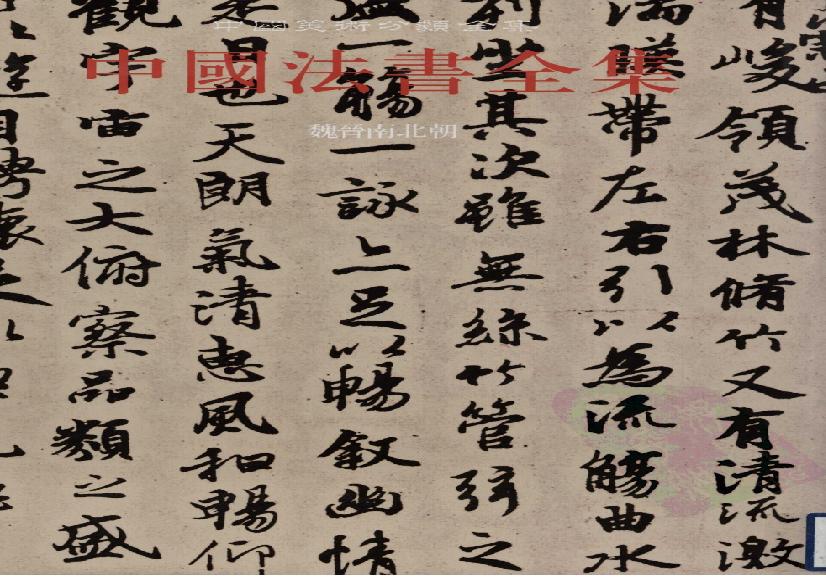 中國美術分類全集
中國法書全集
魏晉南北朝
崇山
有峻領茂林脩竹又有清流激
湍暎帶左右引以為流觴曲水
列坐其次雖無絲竹管弦之
盛一觴一詠亦足以暢敘幽情
是日也天朗氣清惠風和暢仰
觀宇宙之大俯察品類之盛
以遊目騁懷足以